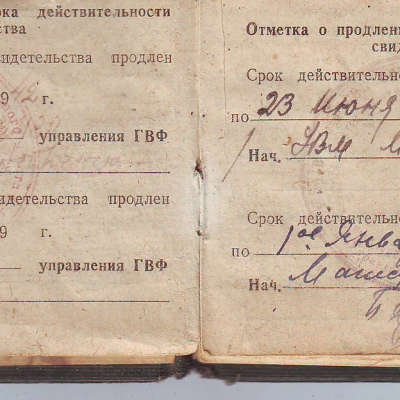 ока действительности
ства
видетельства продлен
9 г.
управления ГВФ
видетельства продлен
9 г.
управления ГВФ
Отметка о продлен
свид
Срок действительно
по 23 Июня
Нач. УВМ
Срок действительно
по 1ое Янва
Нач.